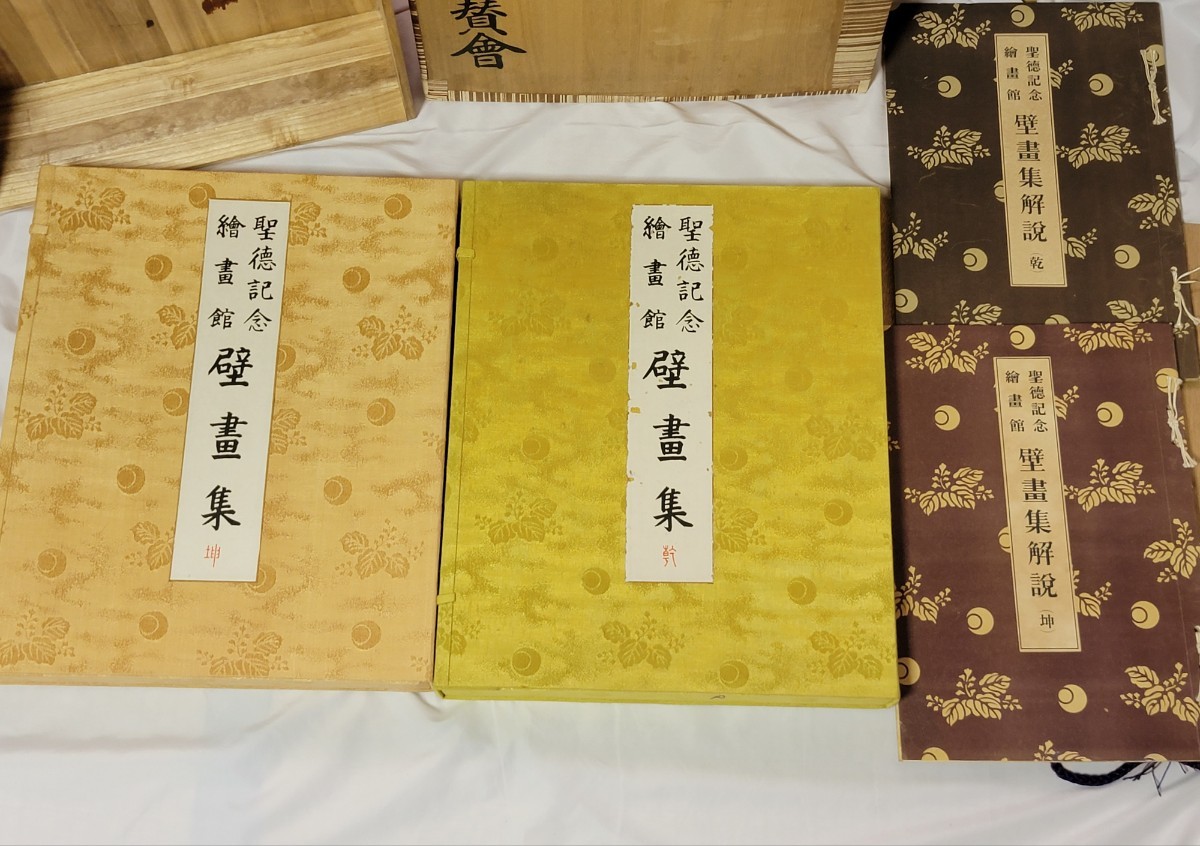 賛會
聖德記念
繪畫館
壁畫集
坤
聖德記念
繪畫館
壁畫集
乾
聖德記念
繪畫館
壁畫集解說
乾
聖德記念
繪畫館
壁畫集解說
(坤)